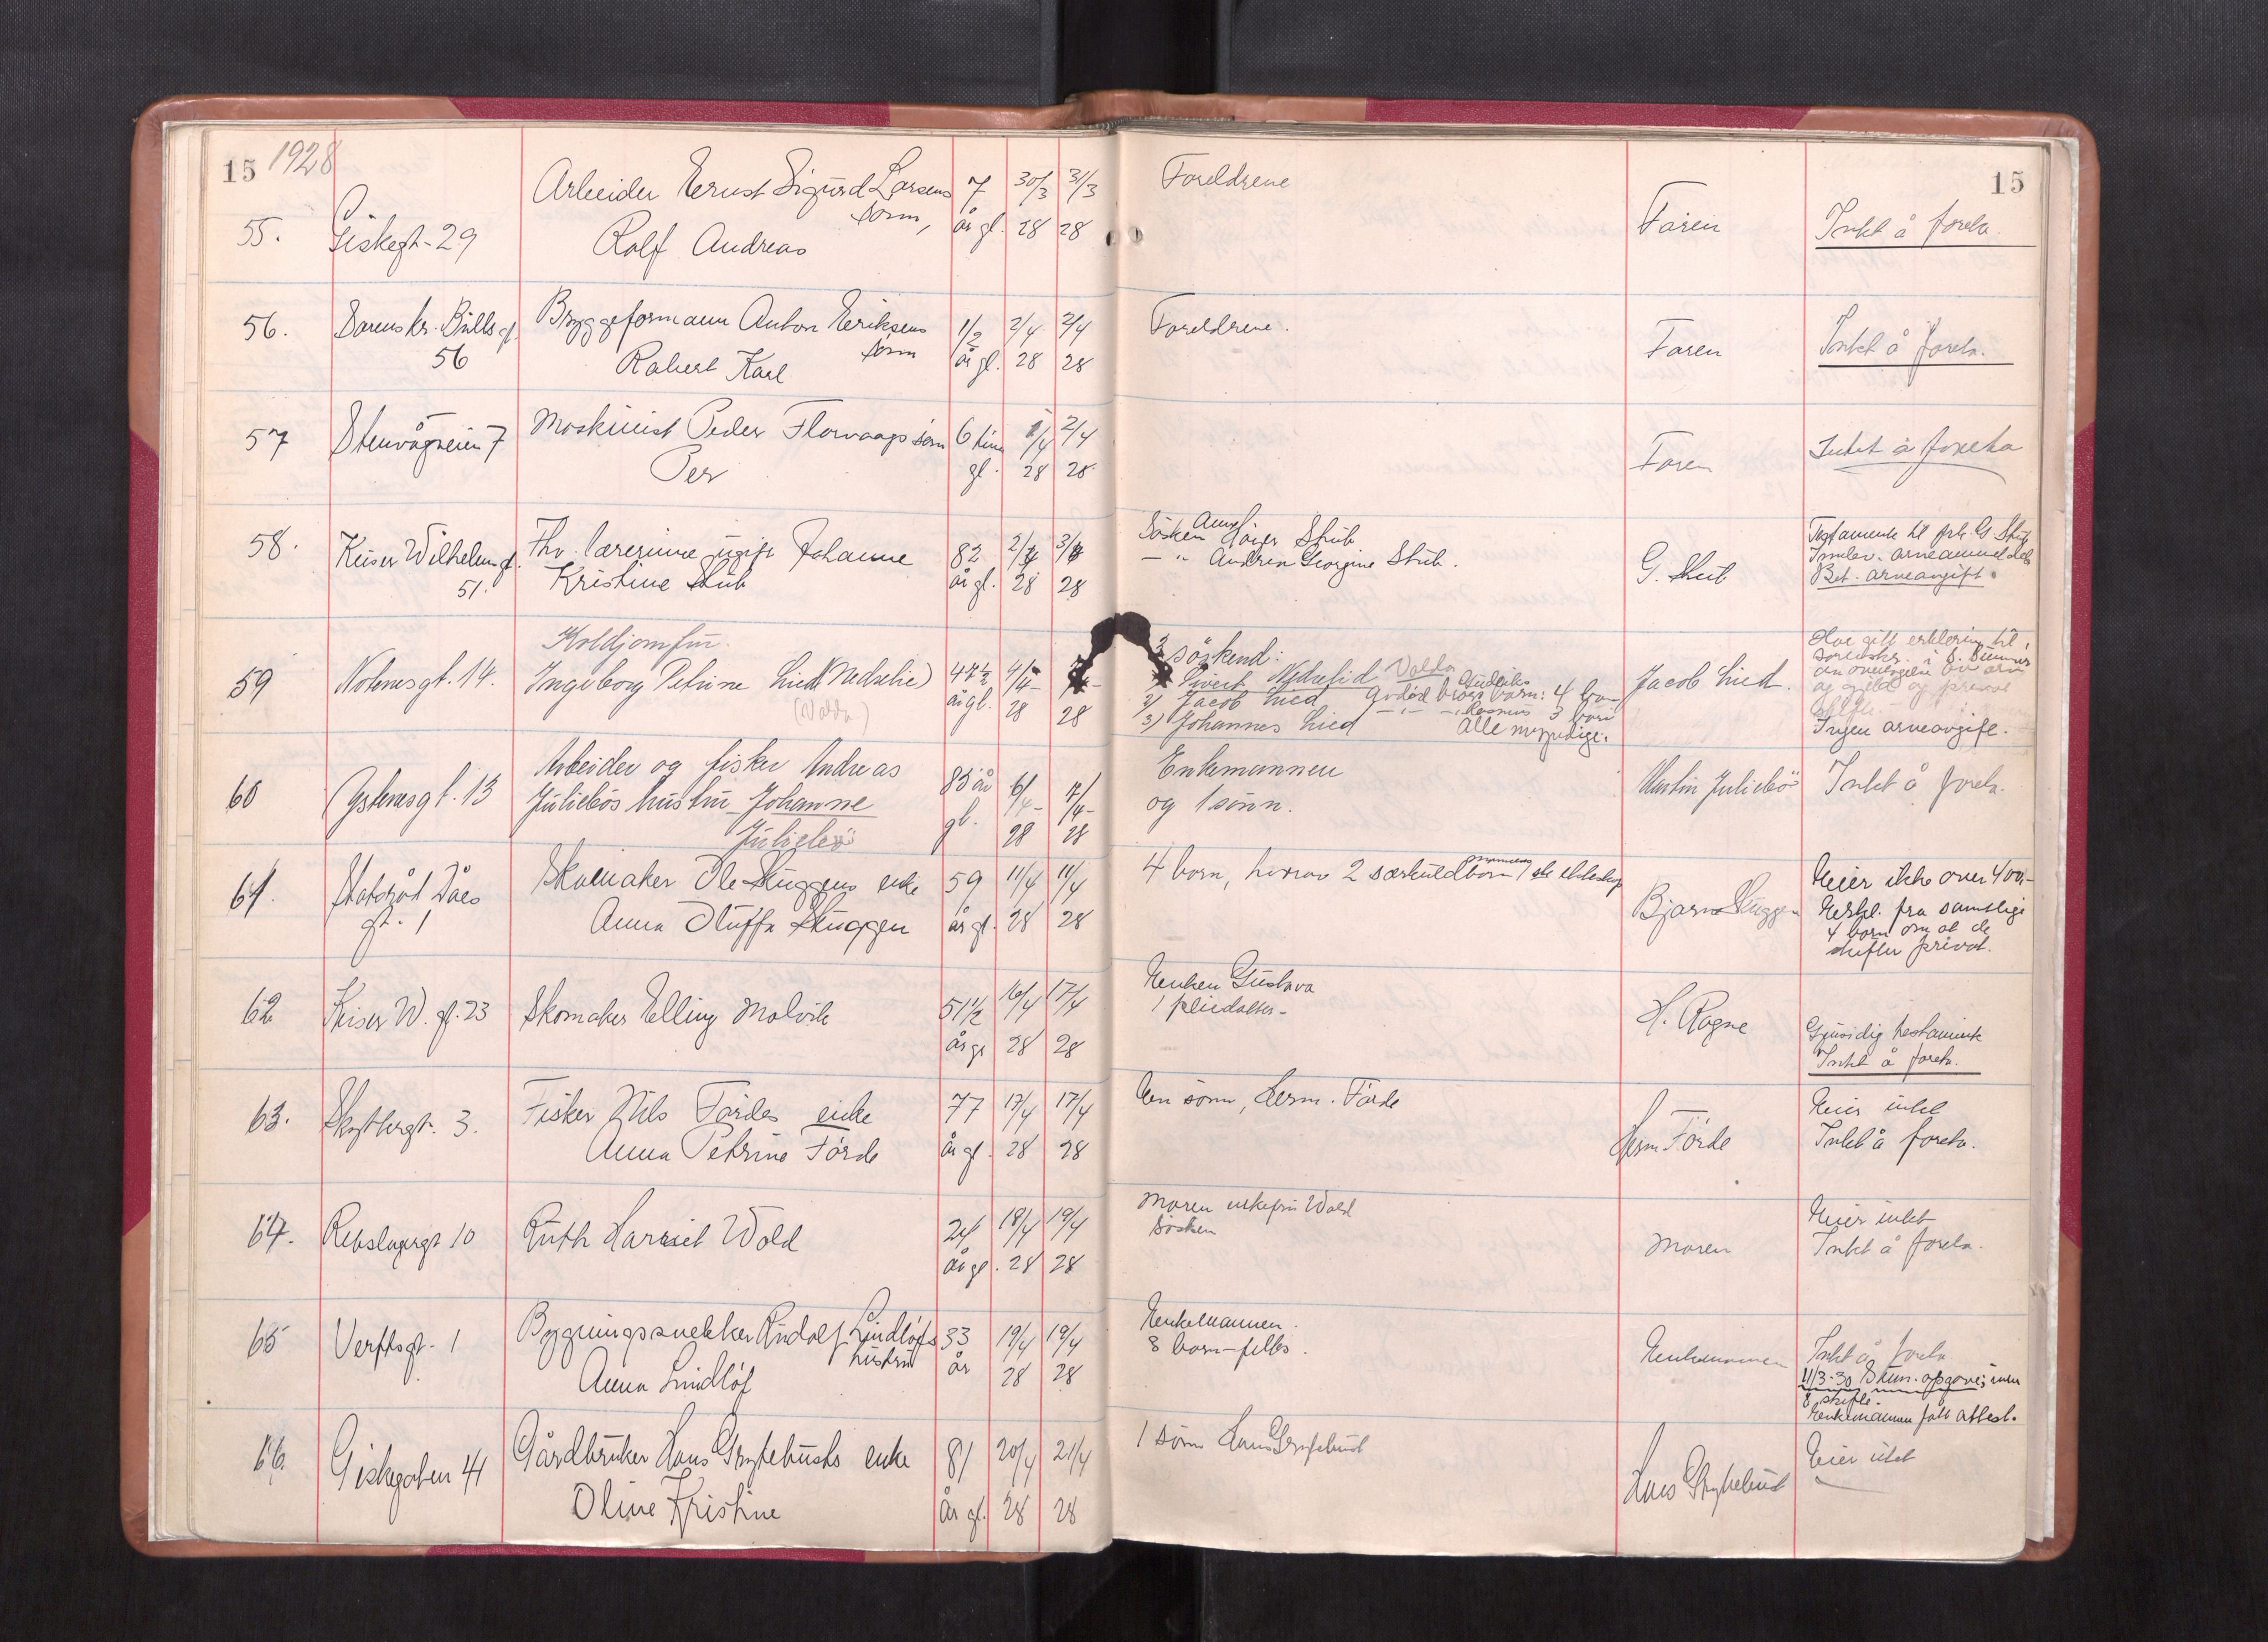 15 1928
55. Giskegt. 29
Arbeider Ernst Sigurd Larsens
sönn,
Rolf Andreas
7 år gl. 30/3 28 31/3 28
Foreldrene
Faren
Intet å foreta.
15
56. Bulls gt. 56
Byggeformann Anton Eriksens
sönn
Robert Karl
1/2 år gl. 2/4 28 2/4 28
Foreldrene.
Faren
Intet å foreta.
57 Stenvågveien 7
Maskinist Peder Florvaags sönn
Per
6 tim gl. 1/4 28 2/4 28
Faren
Intet å foreta
58. Keiser Wilhelms gt. 51.
Fhv. lærerinne ugift Johanne
Kristine Stub
82 år gl. 2/4 28 3/4 28
Sösken Stub
— " — Andrea Georgine Stub.
G. Stub
Testamente til frk. G. Stub
Innlev. arveanmeldelse
Bet. arveavgift.
59 Notenesgt. 14.
Holdjomfru.
Ingeborg Petrine Lied (Nedrelie)
(Volda)
47 1/2 år gl. 4/4 28 28
3 söskend:
1) Sivert Nedrelid Volda
2) Jacob Lied Avdöd brors barn: 4 barn
3) Johannes Lied — " — Rasmus 3 barn
Alle myndige.
Jacob Lied.
Har gitt erklering til
sorenskr. i S. Sunnmör
om overtagelse av arv
og gjeld og privat
skifte.
Ingen arveavgift.
60 Ystenesgt. 13
Arbeider og fisker Andreas
Juliebös hustru Johanne
Juliebö
85 år gl. 6/4 28 7/4 28
Enkemannen
og 1 sönn.
Martin Juliebö
Intet å foreta.
61. Statsråd Daaes gt. 1
Skomaker Ole Skuggens enke
Anna Oluffa Skuggen
59 år gl. 11/4 28 11/4 28
4 barn, hvorav 2 særkuldbarn mannens 1ste ekteskap
Bjarne Skuggen
Eier ikke over 400,-
Erkl. fra samtlige
4 barn om at de
skifter privat.
62 Keiser W. gt. 23
Skomaker Elling Molvik
51 1/2 år gl 16/4 28 17/4 28
Enken Gustava
1 pleiedatter.
H. Rogne
Gjensidig testamente
Intet å foreta.
63. Skytbergt. 3.
Fisker Nils Fördes enke
Anna Petrine Förde
77 år gl. 17/4 28 17/4 28
En sönn, Herm. Förde
Herm Förde
Eier intet
Intet å foreta.
64. Rebslagergt 10
Ruth Harriet Wold
24 år gl. 18/4 28 19/4 28
Moren enkefru Wold
Sösken
Moren
Eier intet
Intet å foreta.
65 Verftsgt. 1
Bygningssnekker Rudolf Lindlöfs
hustru
Anna Lindlöf
33 år 19/4 28 19/4 28
Enkemannen.
8 barn - felles.
Enkemannen
Intet å foreta
11/3-30 Skm. opgave; intet
å skifte.
Enkemannen fått attest.
66. Giskegaten 41
Gårdbruker Hans Grytebusts enke
Oline Kristine
81 år gl. 20/4 28 21/4 28
1 sönn Hans Grytebust
Hans Grytebust
Eier intet